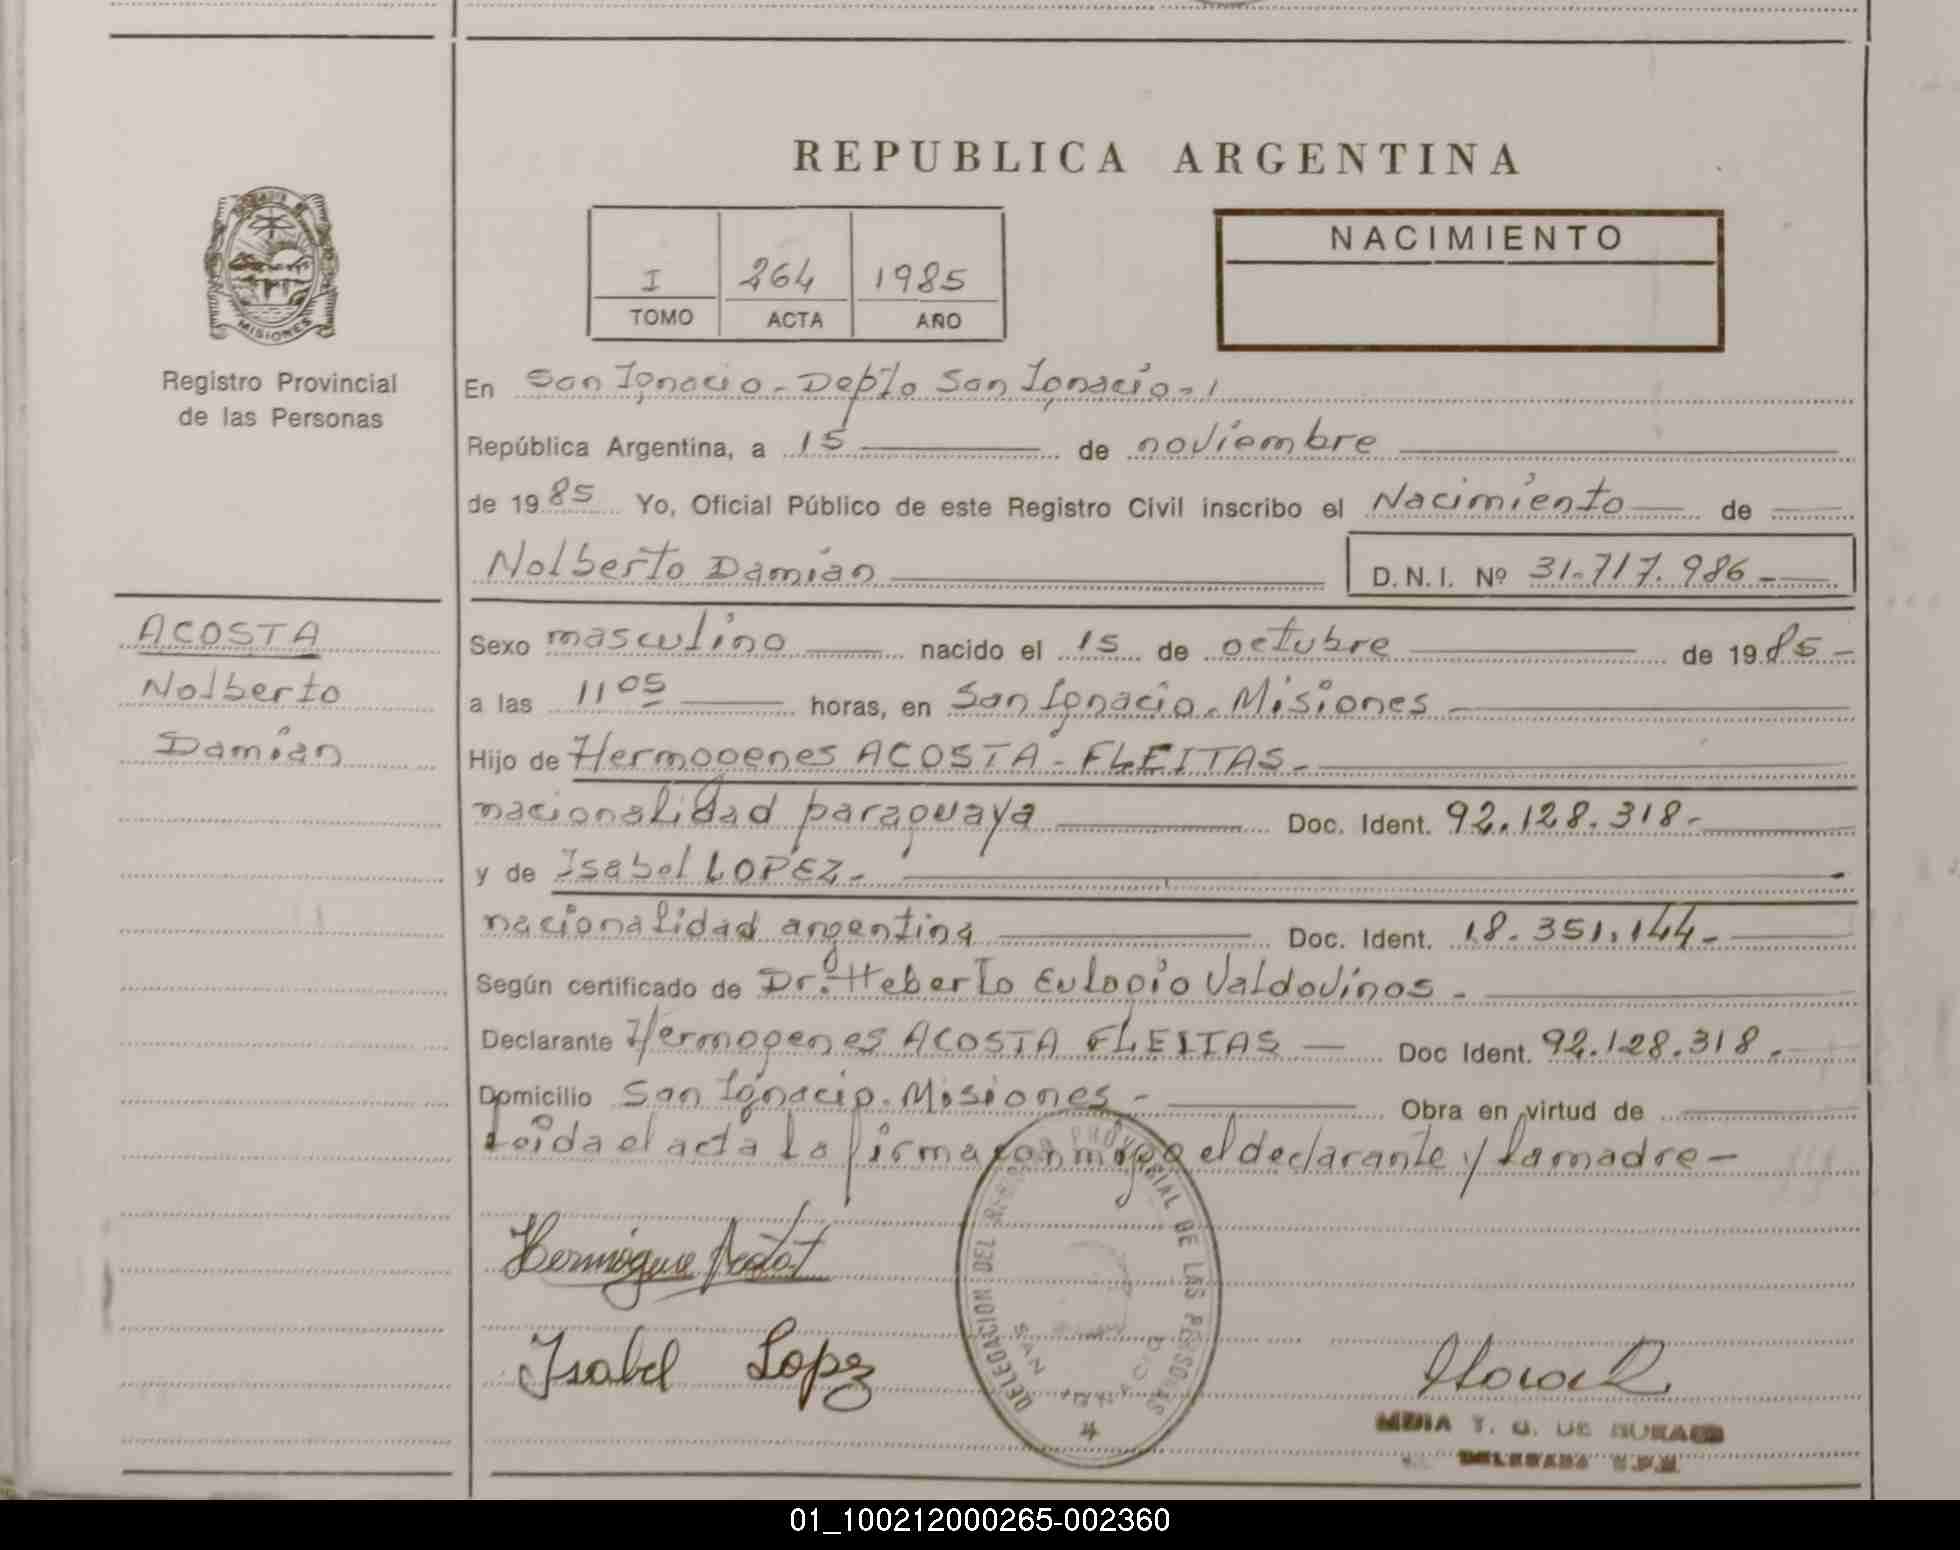 REPUBLICA ARGENTINA
MISIONES
Registro Provincial
de las Personas
I 264 1985
TOMO ACTA AÑO
NACIMIENTO
En San Ignacio - Depto San Ignacio - ,
República Argentina, a 15 de noviembre
de 1985 Yo, Oficial Público de este Registro Civil inscribo el Nacimiento de
Nolberto Damián D.N.I. Nº 31.717.986 -
ACOSTA
Nolberto
Damián
Sexo masculino nacido el 15 de octubre de 1985 -
a las 11 05 horas, en San Ignacio - Misiones
Hijo de Hermogenes ACOSTA - FLEITAS -
nacionalidad paraguaya Doc. Ident. 92.128.318 -
y de Isabel LOPEZ -
nacionalidad argentina Doc. Ident. 18.351.144 -
Según certificado de Dr. Heberto Eulogio Valdovinos -
Declarante Hermogenes ACOSTA FLEITAS Doc Ident. 92.128.318 -
Domicilio San Ignacio - Misiones - Obra en virtud de
Leida el acta la firma conmigo el declarante y la madre -
DELEGACION DEL REGISTRO PROVINCIAL DE LAS PERSONAS
SAN IGNACIO
Isabel Lopez
DELEGADA
01_100212000265-002360